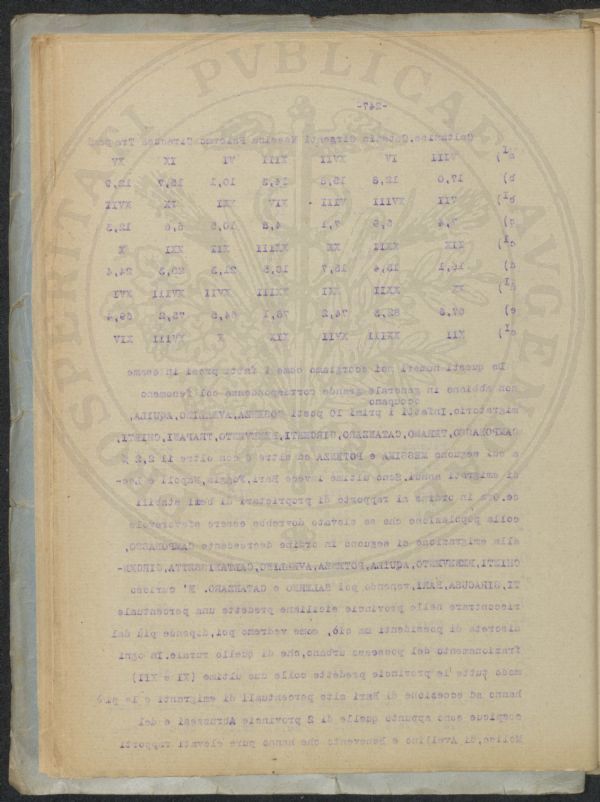 OSPERITATI PVBLICAE AVGEN
-247-
Caltanise.Catania Girgenti Messina Palermo Siracusa Trapani
a¹) VIII IV XVII XIII VI IX XV
b) 17,0 12,8 15,8 14,3 10,1 15,7 12,9
b¹) VII XVIII VIII XIV XXI IX XVII
c) 7,4 6,9 7,1 4,8 10,5 6,6 12,3
c¹) XIX XXII XX XXIII XII XXI X
d) 16,1 15,4 15,7 10,5 21,3 20,3 24,4
d¹) XX XXII XXI XXIII XVII XVIII XVI
e) 67,6 82,3 74,2 76,1 64,5 73,2 69,4
e¹) XII XXIII XVII XIX X XVIII XIV
Da questi numeri noi scorgiamo come i fatti presi in esame
non abbiano in generale grande corrispondenza col fenomeno
occupano
migratorio.Infatti i primi 10 posti COSENZA,AVELLINO,AQUILA,
CAMPOBASSO,TERAMO,CATANZARO,GIRGENTI,BENEVENTO,TRAPANI,CHIETI,
a cui seguono MESSINA e POTENZA ed altre e con oltre il 2,2 %
di emigrati annui.Sono ultime invece Bari,Foggia,Napoli e Lec-
ce.Ora in ordine al rapporto di proprietari di beni stabili
colla popolazione che se elevato dovrebbe essere sfavorevole
alla emigrazione ci seguono in ordine decrescente CAMPOBASSO,
CHIETI,BENEVENTO,AQUILA,POTENZA,AVELLINO,CALTANISSETTA,GIRGEN-
TI,SIRACUSA,BARI,venendo poi SALERNO e CATANZARO. E' curioso
riscontrare nelle provincie siciliane predette una percentuale
discreta di possidenti ma ciò, come vedremo poi,dipende più dal
frazionamento del possesso urbano,che di quello rurale.In ogni
modo tutte le provincie predette colle due ultime (XI e XII)
hanno ad eccezione di Bari alte percentuali di emigranti e le più
cospicue sono appunto quelle di 2 provincie Abruzzesi e del
Molise,di Avellino e Benevento che hanno pure elevati rapporti